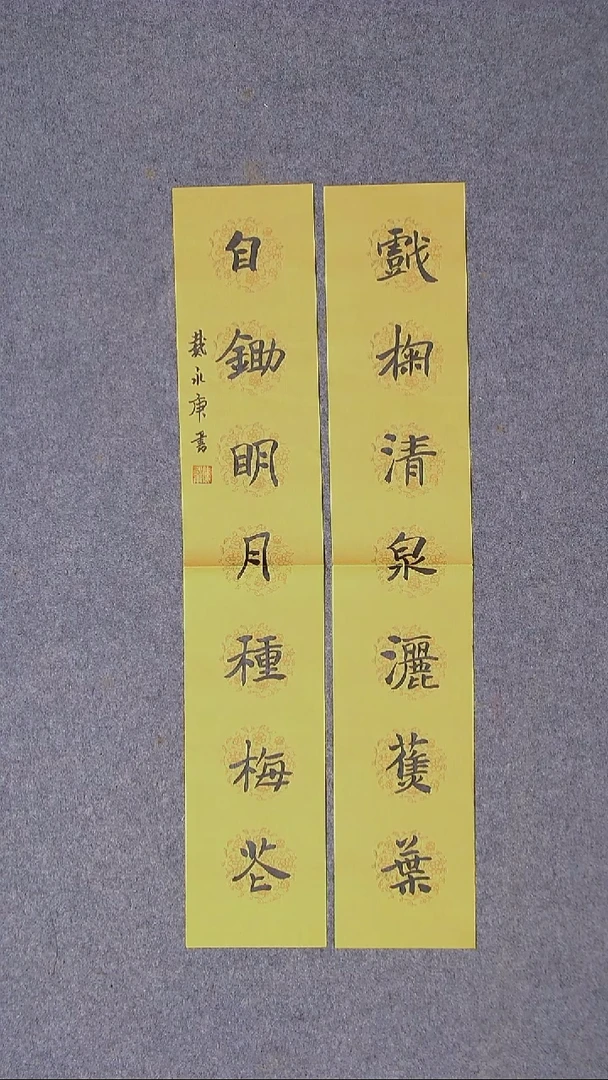 戲掬清泉灑蕉葉
自鋤明月種梅花
戴永庚書